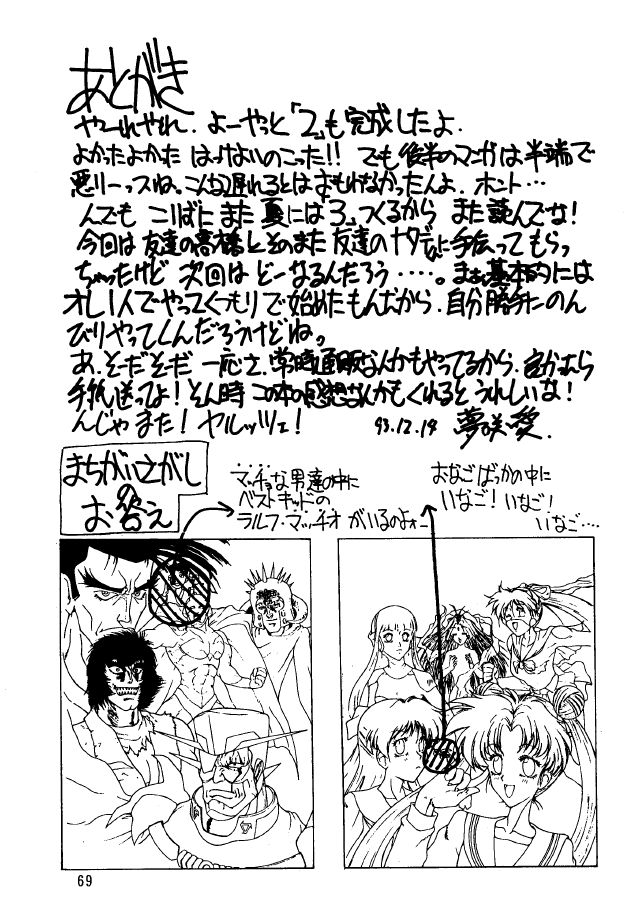 あとがき
やーれやれ．よーやっと「2」も完成したよ．
よかったよかった はっけよいのこった!! でも後半のマンガは半端で
悪りーっスね。こんな遅れるとはおもわなかったんよ．ホント…
んでも こりずに また 夏には「3」つくるから また読んでな!
今回は 友達の高橋と そのまた 友達の ナダさんに 手伝って もらっ
ちゃったけど 次回は どーなるんだろう ‥‥。まぁ基本的には
オレ1人で やってくつもりで 始めたもんだから．自分勝手にのん
びりやってくんだろうけどね。
あ．そーだそーだ 一応さ．常時通販なんかもやってるから．良かったら
手紙送ってよ! そん時 この本の感想なんかもくれると うれしいな!
んじゃまた! ヤルッツェ! 93.12.19 夢咲 愛．
まちがいさがし
の
お答え
マッチョな男達の中に
ベストキッドの
ラルフ・マッチオ がいるのよォー
おなごばっかの中に
いなご! いなご!
いなご‥‥
69